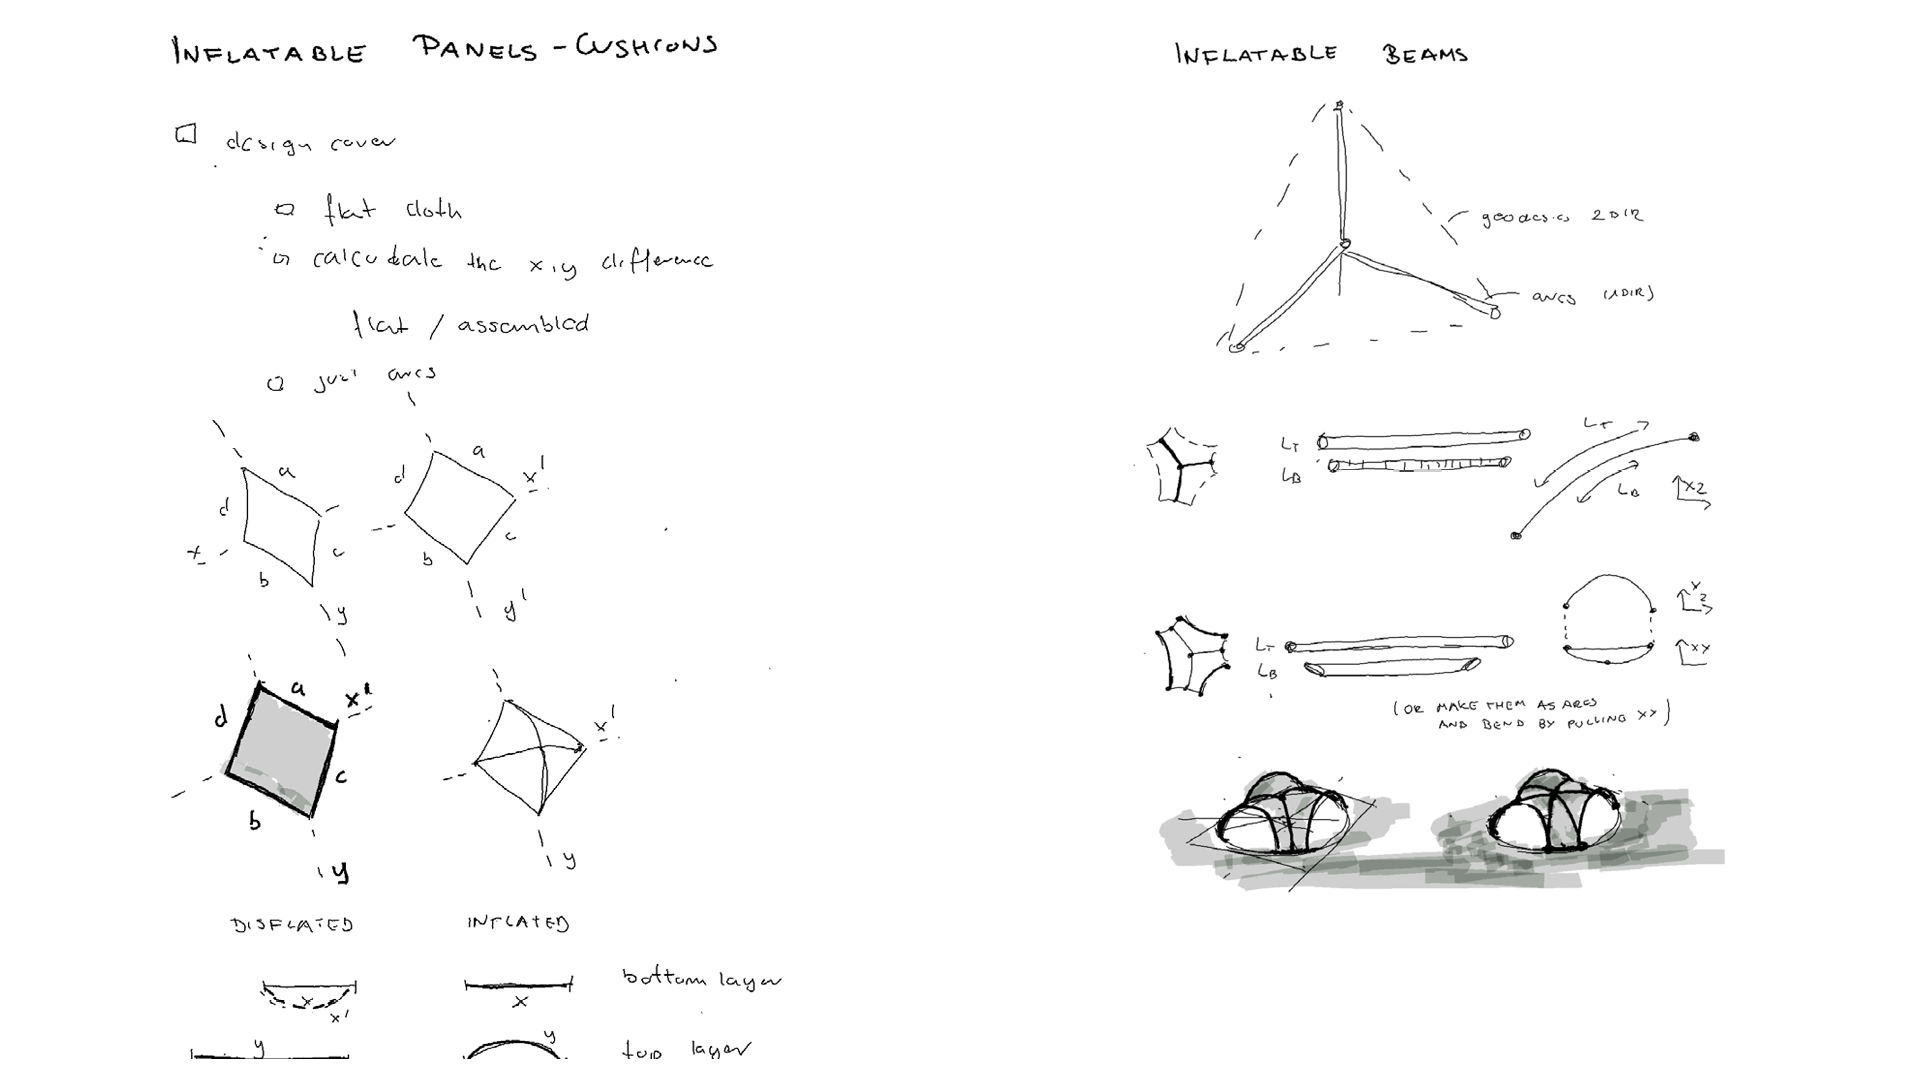 INFLATABLE PANELS - CUSHIONS
design cover
flat cloth
calculate the x,y difference
flat / assembled
just arcs
a
d
c
b
x
y
a
x'
d
c
b
y'
a
x'
d
c
b
y
x'
y
DISFLATED
INFLATED
x
x'
x
bottom layer
y
y
top layer
INFLATABLE BEAMS
geodesics 2DIR
arcs (1DIR)
LT
LB
LT
LB
XZ
LT
LB
XZ
XY
(OR MAKE THEM AS ARCS
AND BEND BY PULLING XY)